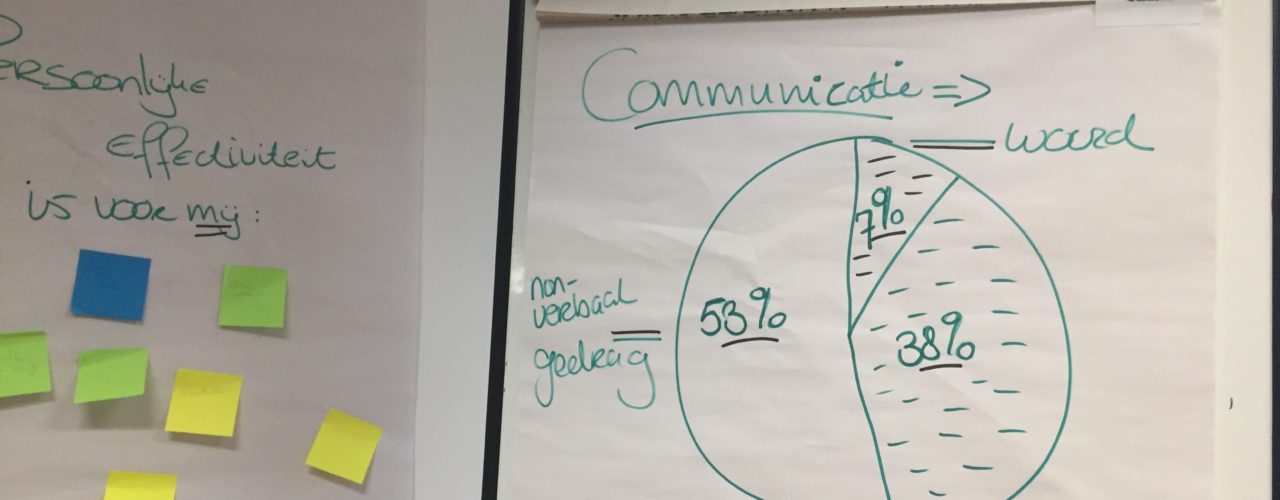 Persoonlijke
effectiviteit
is voor mij:
Communicatie =>
woord
7%
non-
verbaal
gedrag
53%
38%